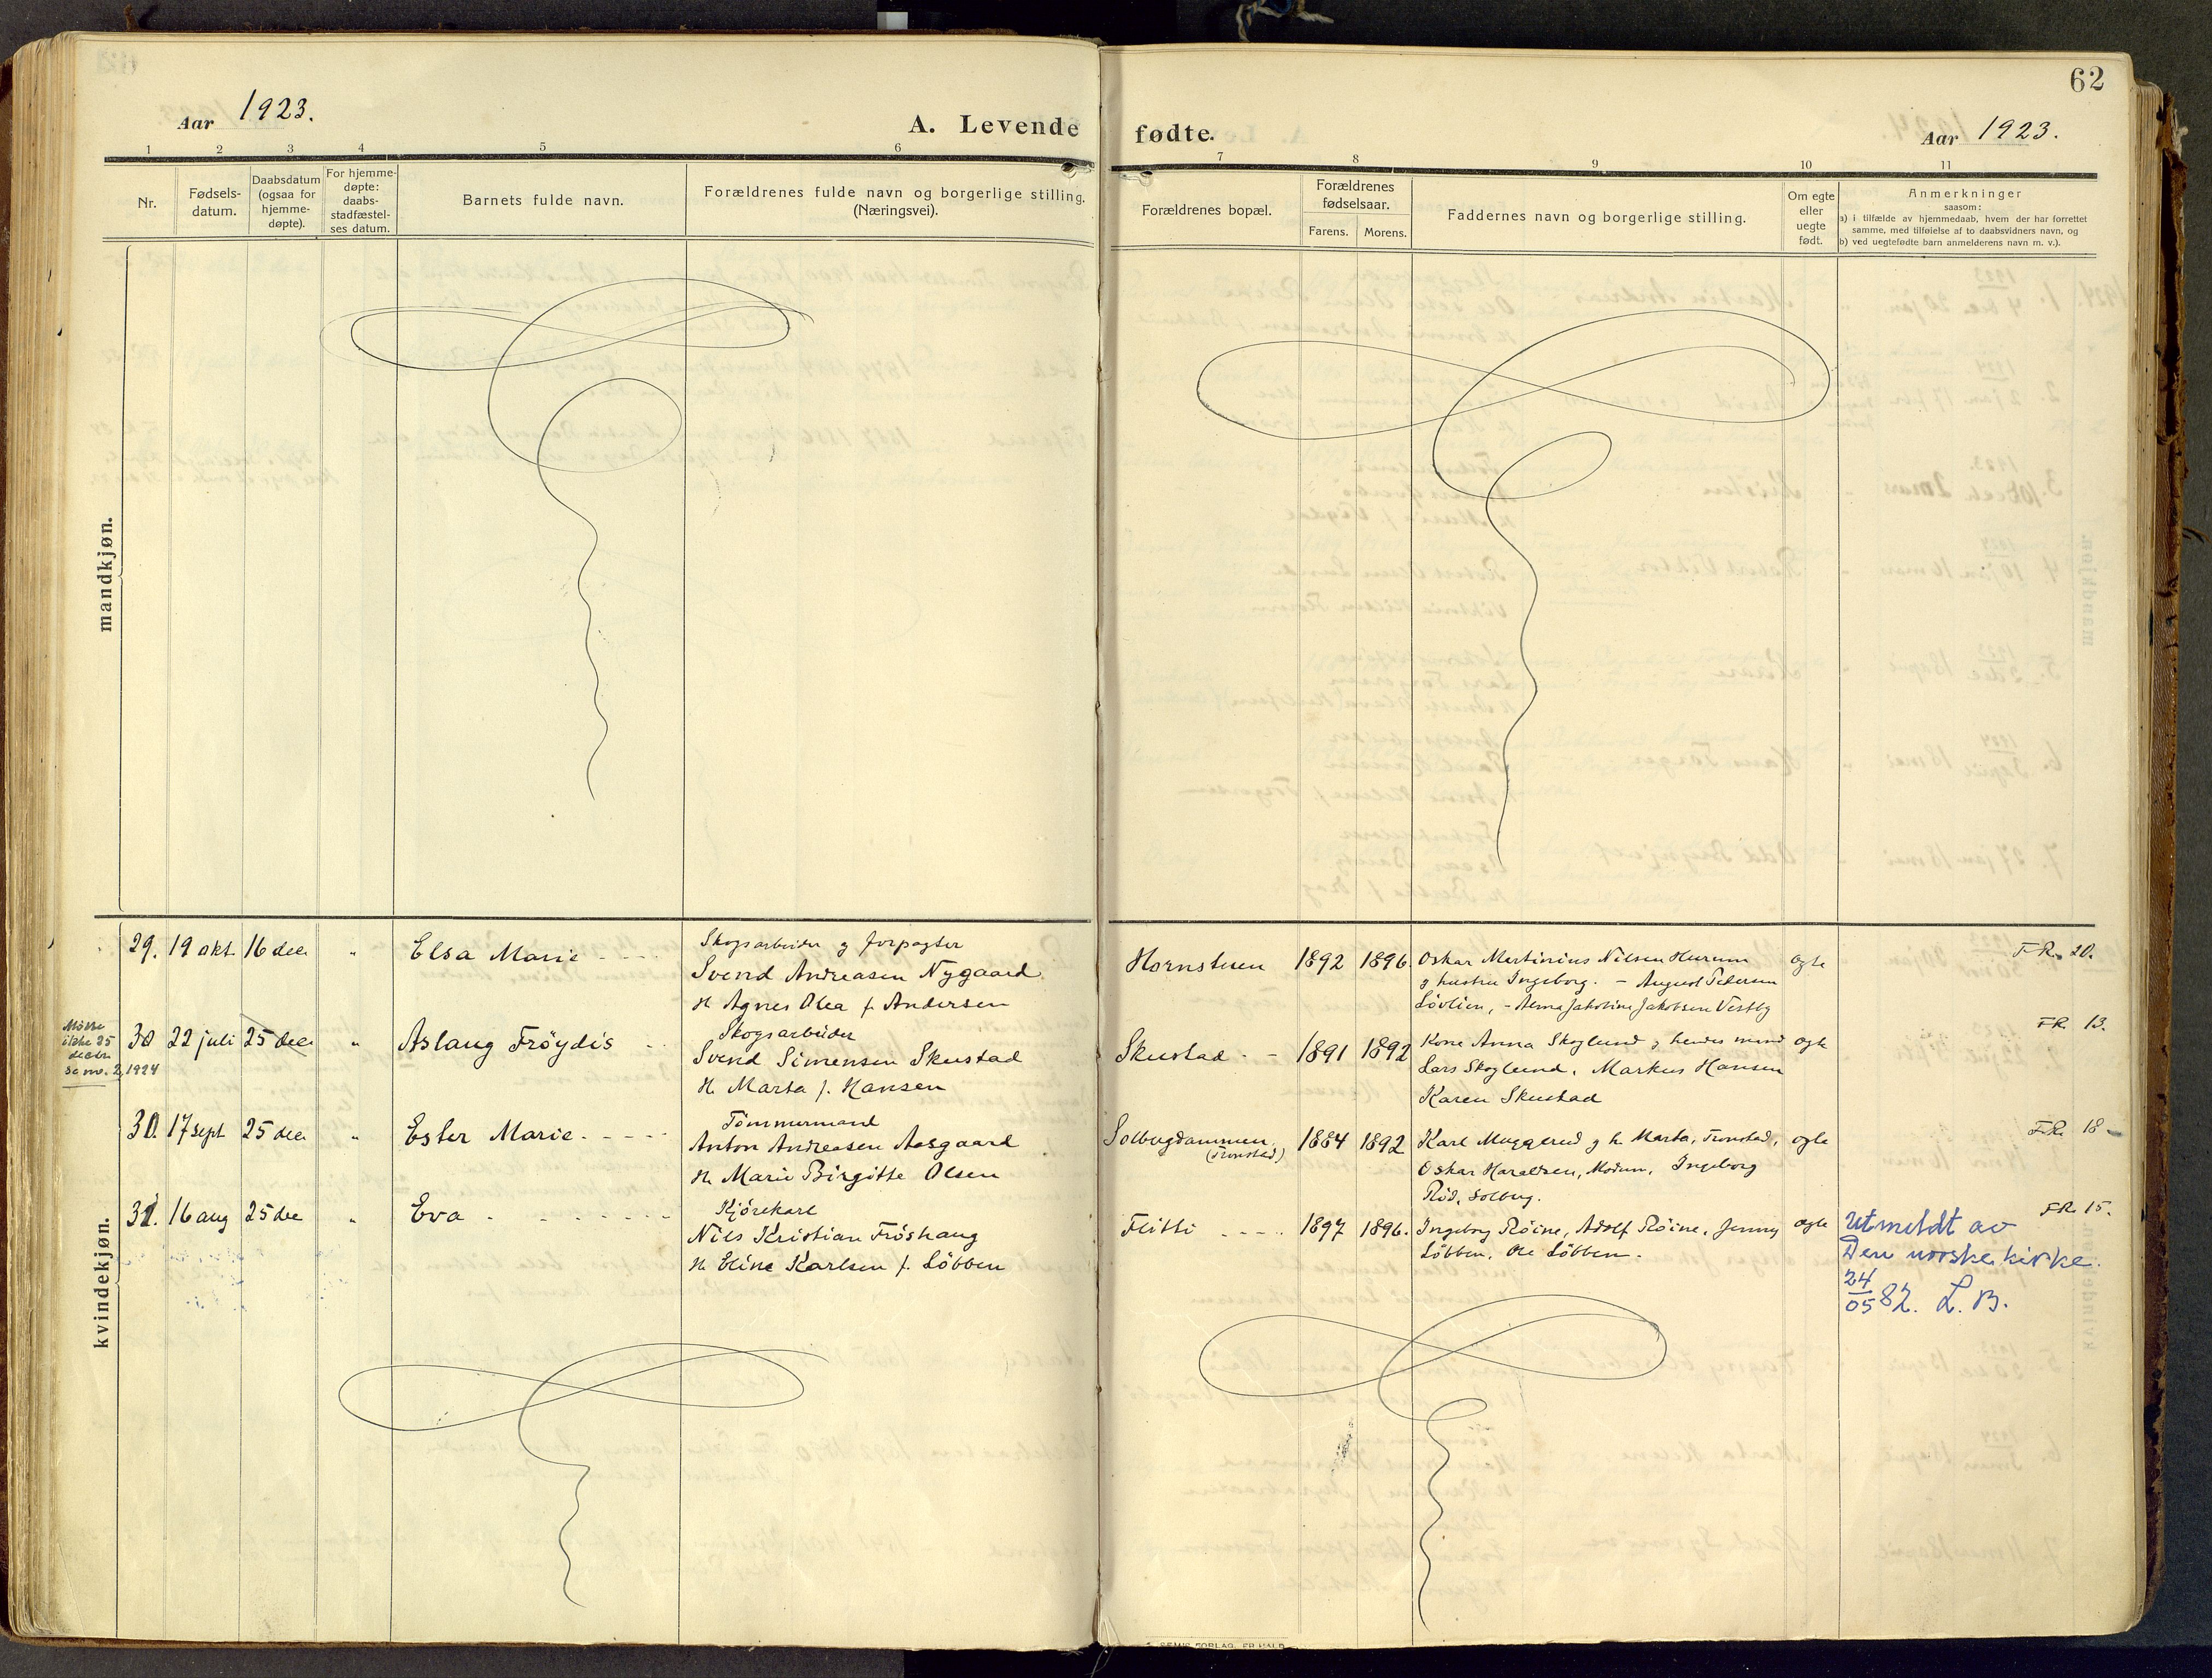 62
Aar 1923.
A. Levende fødte.
Aar 1923.
1 2 3 4 5 6 7 8 9 10 11
Nr.
Fødsels-
datum.
Daabsdatum
(ogsaa for
hjemme-
døpte).
For hjemme-
døpte:
daabs-
stadfæstel-
ses datum.
Barnets fulde navn.
Forældrenes fulde navn og borgerlige stilling.
(Næringsvei).
Forældrenes bopæl.
Forældrenes
fødselsaar.
Farens. Morens.
Faddernes navn og borgerlige stilling.
Om egte
eller
uegte
født.
Anmerkninger
saasom:
a) i tilfælde av hjemmedaab, hvem der har forrettet
samme, med tilføielse af to daabsvidners navn, og
b) ved uegtefødte barn anmelderens navn m. v.).
mandkjøn.
kvindekjøn.
29. 19 okt. 16 dec " Elsa Marie
Skogsarbeider og forpagter
Svend Andreasen Nygaard
H Agnes Olea f. Andersen
Hornstuen 1892 1896.
Oskar Martinius Nilsen Hurum
g hustru Ingeborg. - August Pedersen
Lövlien, - Anna Jakobine Jakobsen Vestby
egte
FR. 20.
Møtte
ikke 25
decbr.
se nr. 2, 1924
30 22 juli 25 dec " Aslaug Fröydis
Skogsarbeider
Svend Simensen Skustad
H. Marta f. Hansen
Skustad 1891 1892
Kone Anna Skoglund g hendes mand
Lars Skoglund. Markus Hansen
Karen Skustad
egte
FR. 13.
30. 17 sept 25 dec " Ester Marie
Tömmermand
Anton Andreasen Aasgaard
H. Marie Birgitte Olsen
Solbugdammen
(Tronstad)
1884 1892
Karl Muggerud g h. Marta, Tronstad,
Oskar Haraldsen, Modum, Ingeborg
Röd, Solberg.
egte
FR. 18
31. 16 aug 25 dec " Eva
Kjørekarl
Nils Kristian Fröshaug
H. Eline Karlsen f. Löbben
Flitti 1897 1896.
Ingeborg Röine, Adolf Röine, Jenny
Löbben, Ole Löbben.
egte
FR. 15.
Utmeldt av
Den norske kirke.
24/05 82. L. B.